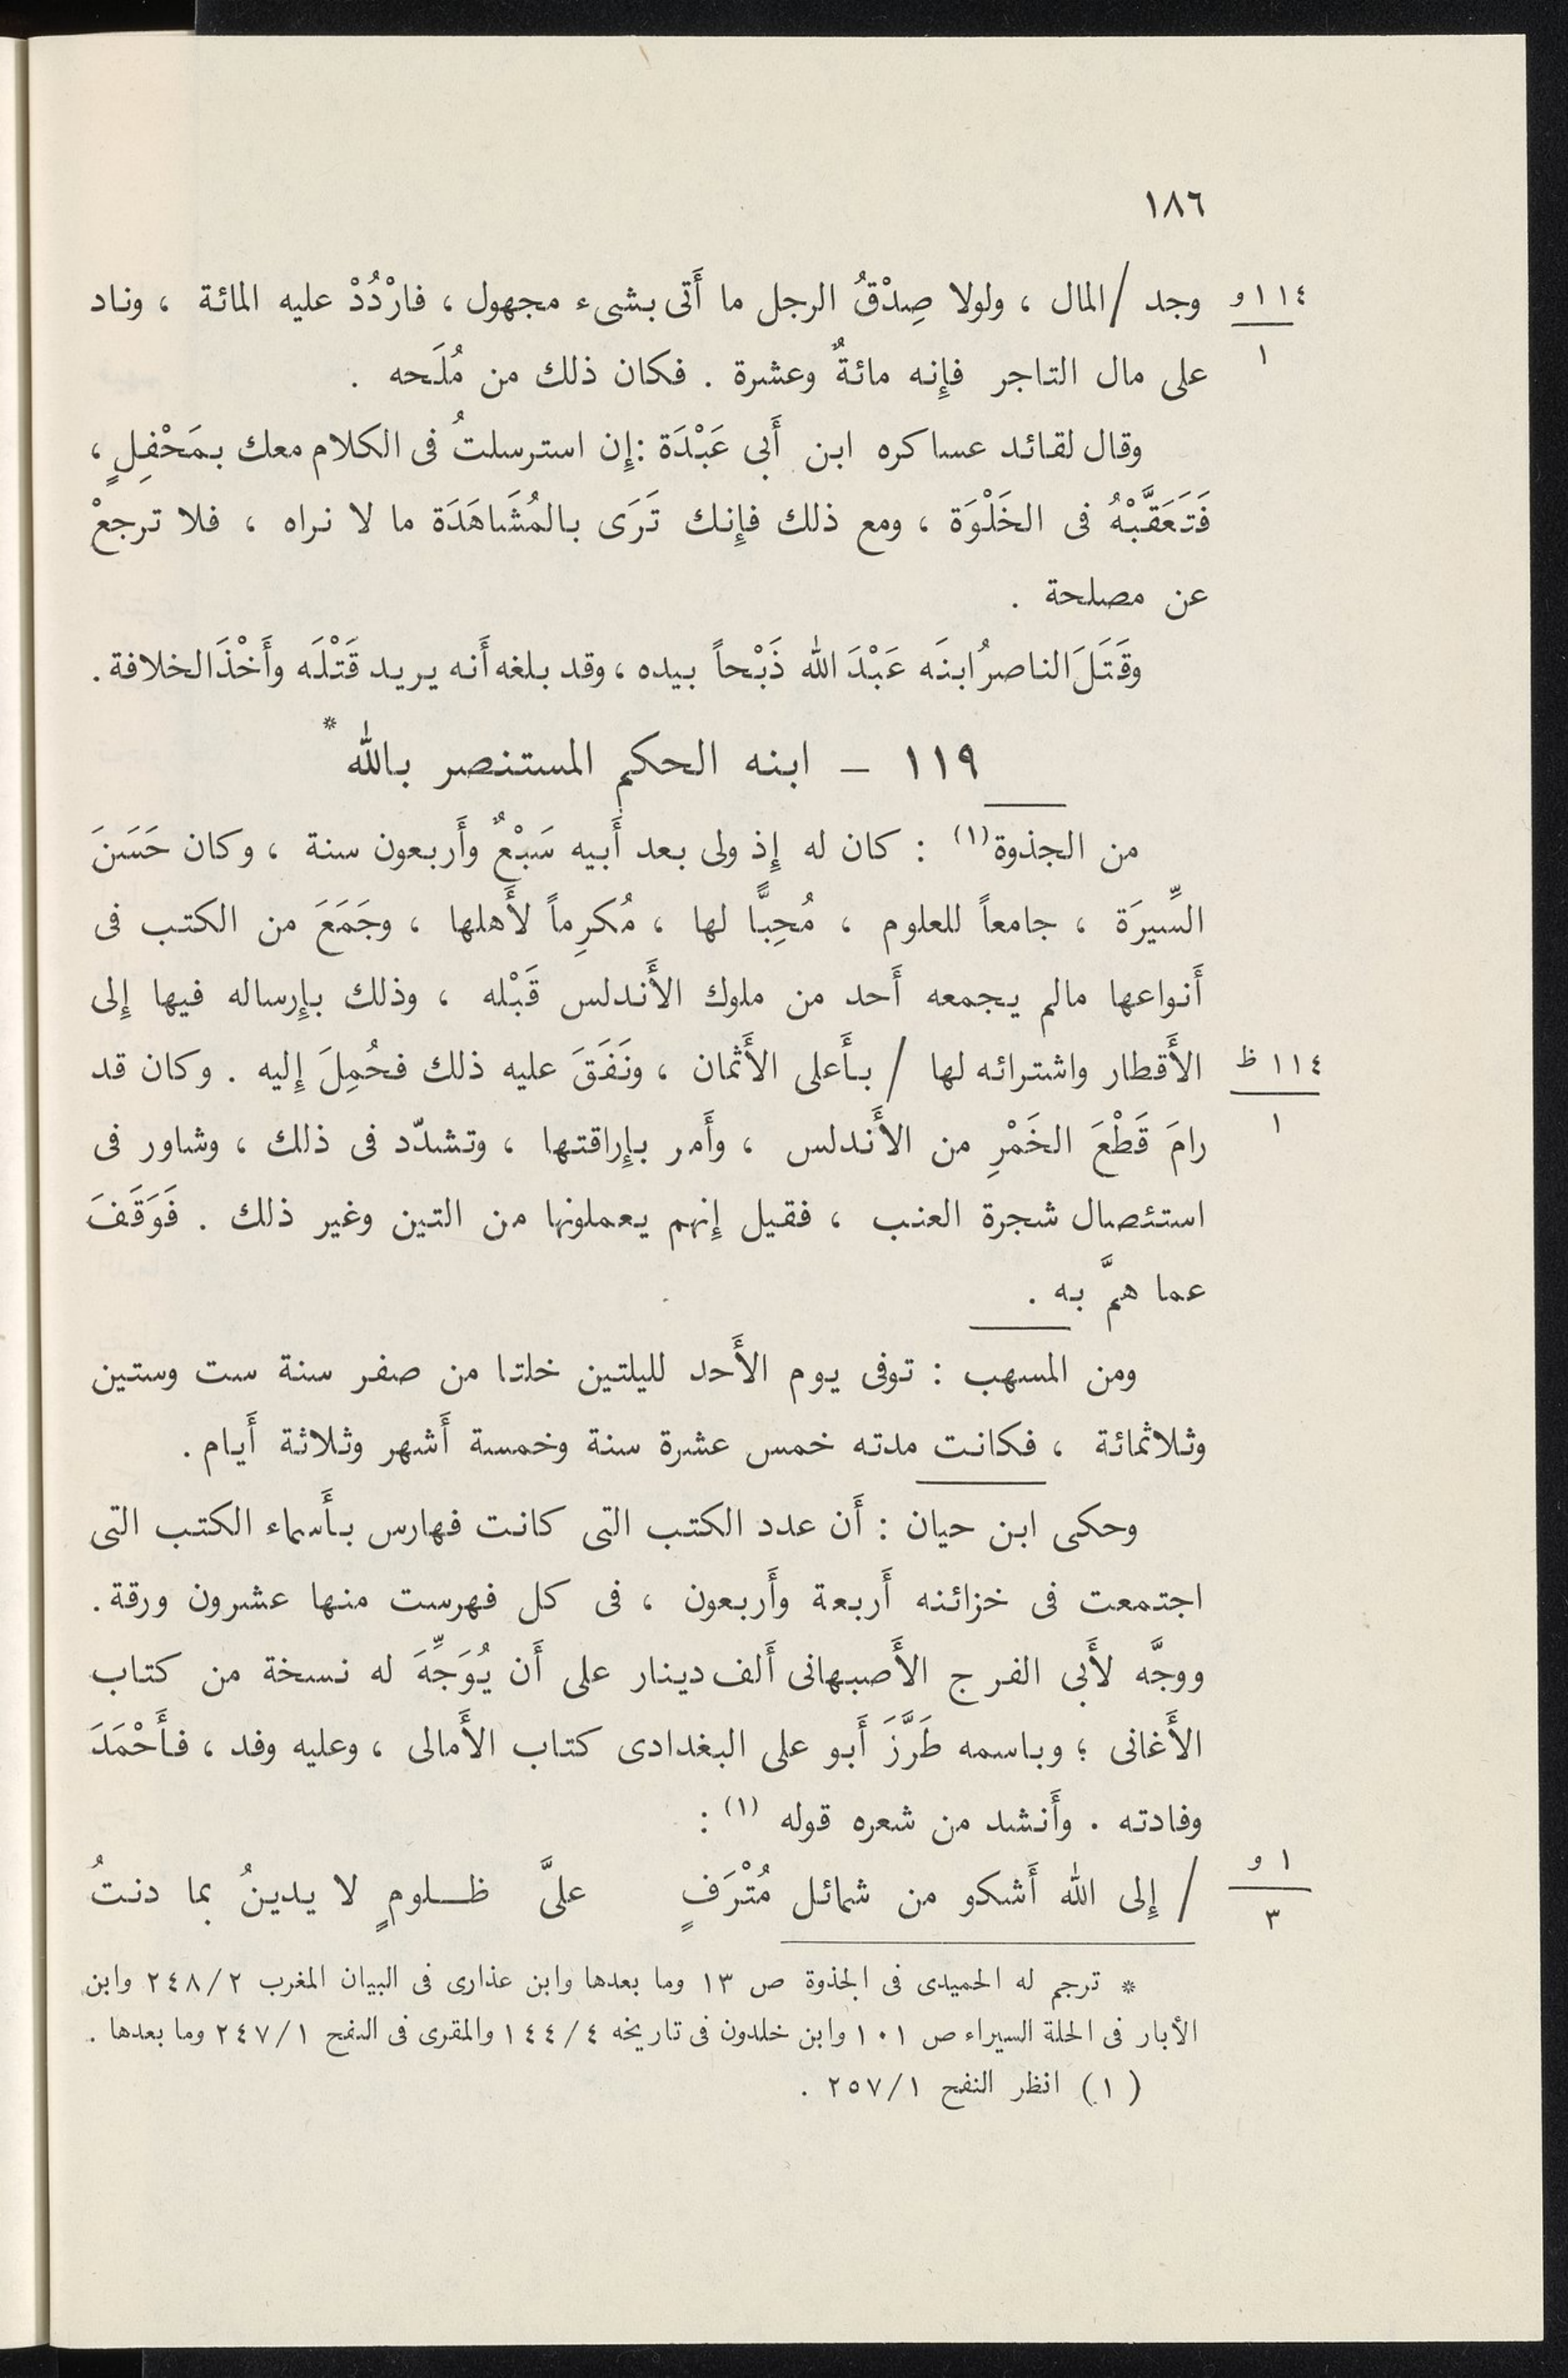 ١٨٦
١١٤ و
١
وجد / المال ، ولولا صِدْقُ الرجل ما أَتى بشىء مجهول ، فارْدُدْ عليه المائة ، وناد
على مال التاجر فإِنه مائةٌ وعشرة . فكان ذلك من مُلَحه .
وقال لقائد عساكره ابن أَبى عَبْدَة : إِن استرسلتُ فى الكلام معك بمَحْفِلٍ ،
فَتَعَقَّبْهُ فى الخَلْوَة ، ومع ذلك فإِنك تَرَى بالمُشَاهَدَة ما لا نراه ، فلا ترجعْ
عن مصلحة .
وقَتَلَ الناصرُ ابنَه عَبْدَ الله ذَبْحاً بيده ، وقد بلغه أَنه يريد قَتْلَه وأَخْذَ الخلافة .
١١٩ – ابنه الحكم المستنصر بالله *
من الجذوة (١) : كان له إِذ ولى بعد أَبيه سَبْعٌ وأَربعون سنة ، وكان حَسَنَ
السِّيرَة ، جامعاً للعلوم ، مُحِبًّا لها ، مُكرِماً لأَهلها ، وجَمَعَ من الكتب فى
أَنواعها مالم يجمعه أَحد من ملوك الأَندلس قَبْله ، وذلك بإِرساله فيها إِلى
١١٤ ظ
١
الأَقطار واشترائه لها / بأَعلى الأَثمان ، ونَفَقَ عليه ذلك فحُمِلَ إِليه . وكان قد
رامَ قَطْعَ الخَمْرِ من الأَندلس ، وأَمر بإِراقتها ، وتشدّد فى ذلك ، وشاور فى
استئصال شجرة العنب ، فقيل إِنهم يعملونها من التين وغير ذلك . فَوَقَفَ
عما همَّ به .
ومن المسهب : توفى يوم الأَحد لليلتين خلتا من صفر سنة ست وستين
وثلاثمائة ، فكانت مدته خمس عشرة سنة وخمسة أَشهر وثلاثة أَيام .
وحكى ابن حيان : أَن عدد الكتب التى كانت فهارس بأَسماء الكتب التى
اجتمعت فى خزائنه أَربعة وأَربعون ، فى كل فهرست منها عشرون ورقة .
ووجَّه لأَبى الفرج الأَصبهانى أَلف دينار على أَن يُوَجِّهَ له نسخة من كتاب
الأَغانى ؛ وباسمه طَرَّزَ أَبو على البغدادى كتاب الأَمالى ، وعليه وفد ، فأَحْمَدَ
وفادته . وأَنشد من شعره قوله (١) :
١ و
٣
/ إِلى الله أَشكو من شمائل مُتْرَفٍ علىَّ ظلومٍ لا يدينُ بما دنتُ
* ترجم له الحميدى فى الجذوة ص ١٣ وما بعدها وابن عذارى فى البيان المغرب ٢٤٨/٢ وابن
الأبار فى الحلة السيراء ص ١٠١ وابن خلدون فى تاريخه ١٤٤/٤ والمقرى فى النفح ٢٤٧/١ وما بعدها .
(١) انظر النفح ٢٥٧/١ .